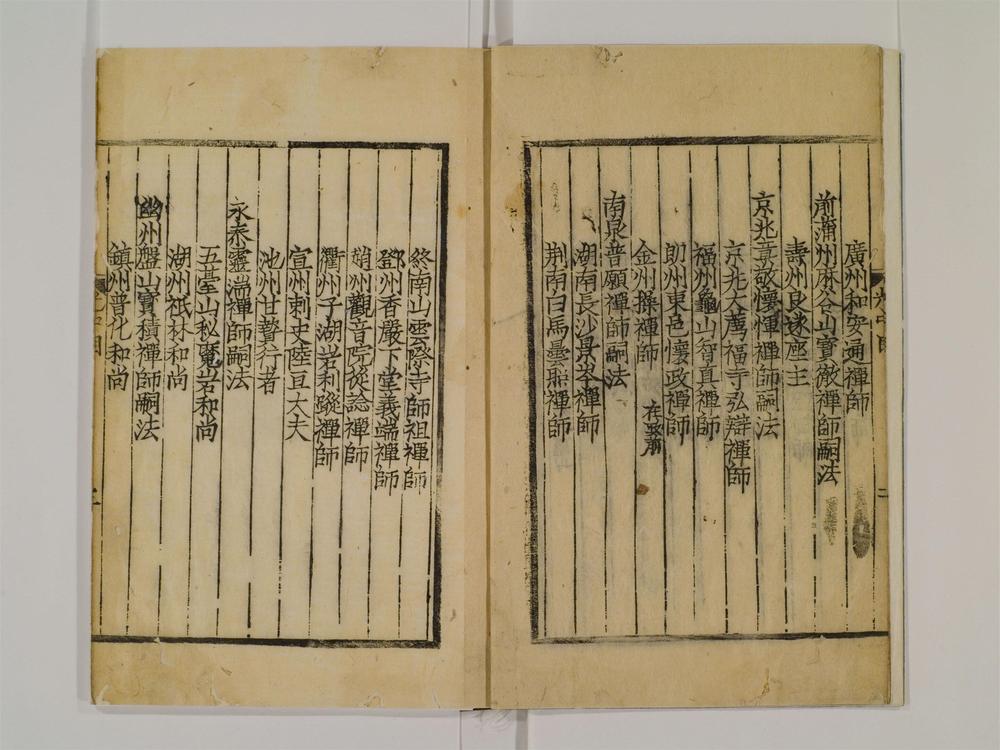 廣州和安通禪師
前蒲州麻谷山寶徹禪師嗣法
壽州良遂座主
京兆章敬懷惲禪師嗣法
京兆大薦福寺弘辯禪師
福州龜山智真禪師
朗州東邑懷政禪師
金州操禪師
南泉普願禪師嗣法
湖南長沙景岑禪師
荆南白馬曇照禪師
終南山雲際寺師祖禪師
鄧州香嚴下堂義端禪師
趙州觀音院從諗禪師
衢州子湖岩利蹤禪師
宣州刺史陸亘大夫
池州甘贄行者
永泰靈湍禪師嗣法
五臺山秘魔岩和尚
湖州祇林和尚
幽州盤山寶積禪師嗣法
鎮州普化和尚
二